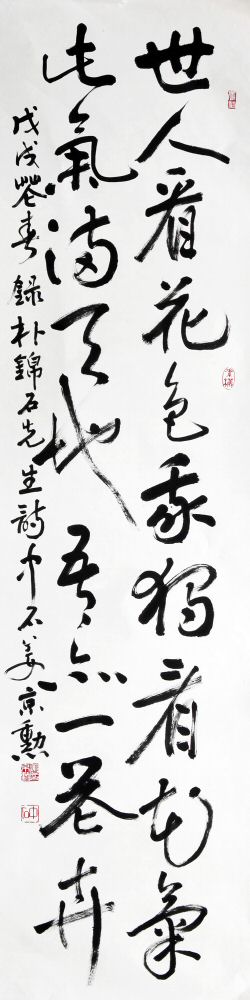 世人看花色我獨看花氣
此氣滿天地吾亦一花卉
戊戌暮春錄朴錦石先生詩中石姜京勳